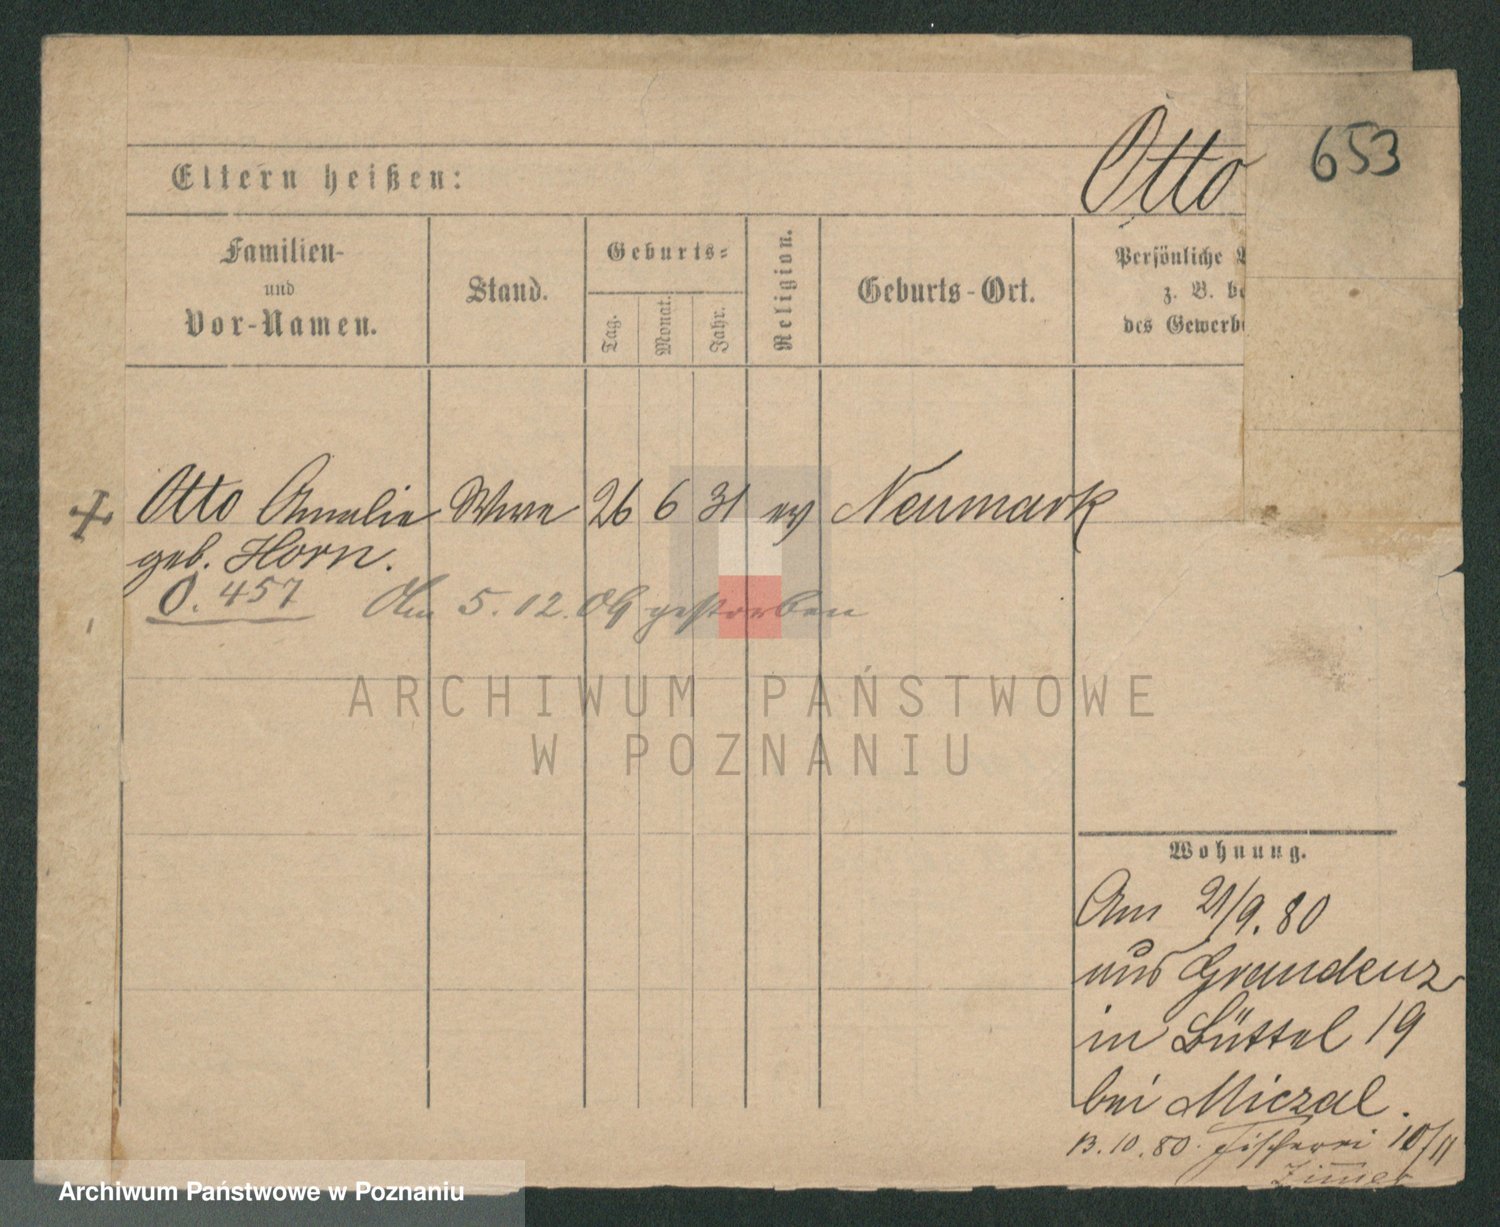 653
Otto
Eltern heißen:
Familien-
und
Vor-Namen.
Stand.
Geburts-
Tag.
Monat.
Jahr.
Religion.
Geburts-Ort.
Persönliche
z. B. be
des Gewerb
Otto Amalie Wwe 26 6 31 ev Neumark
geb. Horn.
O. 457 Am 5. 12. 09 gestorben
ARCHIWUM PAŃSTWOWE
W POZNANIU
Wohnung.
Am 21/9. 80
aus Graudenz
in Büttel 19
bei Miczal.
13. 10. 80. Fischerei 10/11
Archiwum Państwowe w Poznaniu